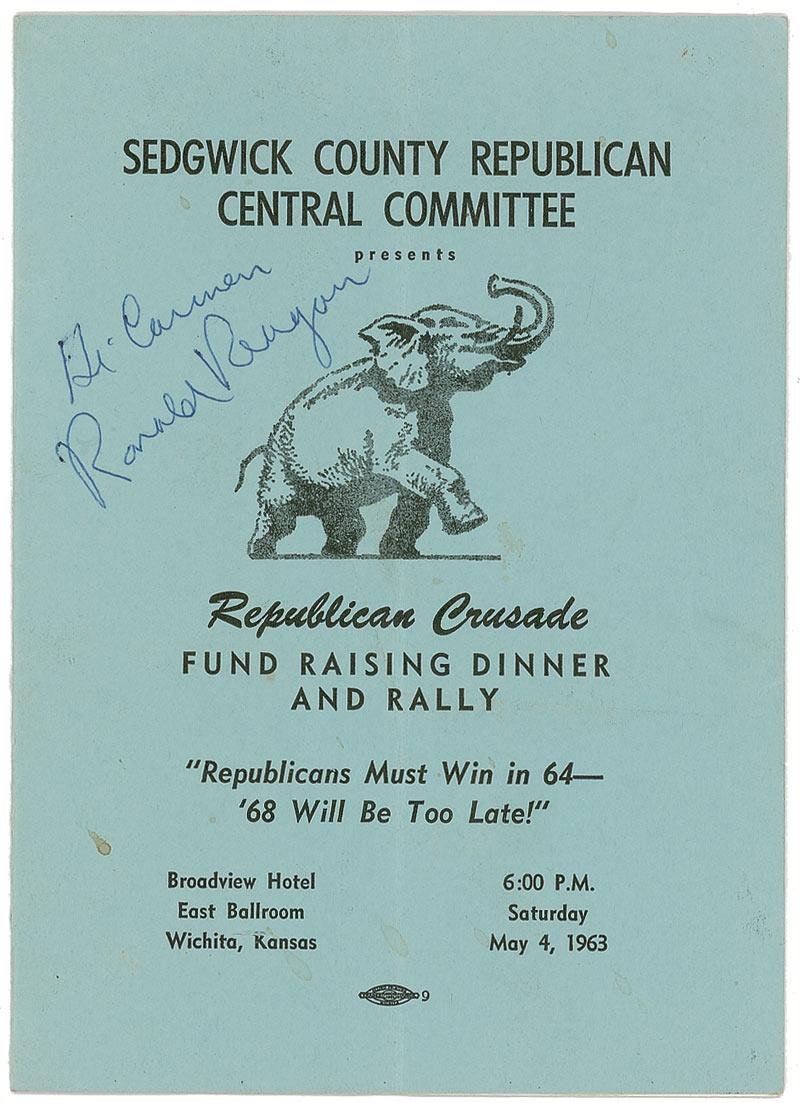 SEDGWICK COUNTY REPUBLICAN
CENTRAL COMMITTEE
presents
Hi Carmen
Ronald Reagan
Republican Crusade
FUND RAISING DINNER
AND RALLY
"Republicans Must Win in 64—
'68 Will Be Too Late!"
Broadview Hotel
East Ballroom
Wichita, Kansas
6:00 P.M.
Saturday
May 4, 1963
9